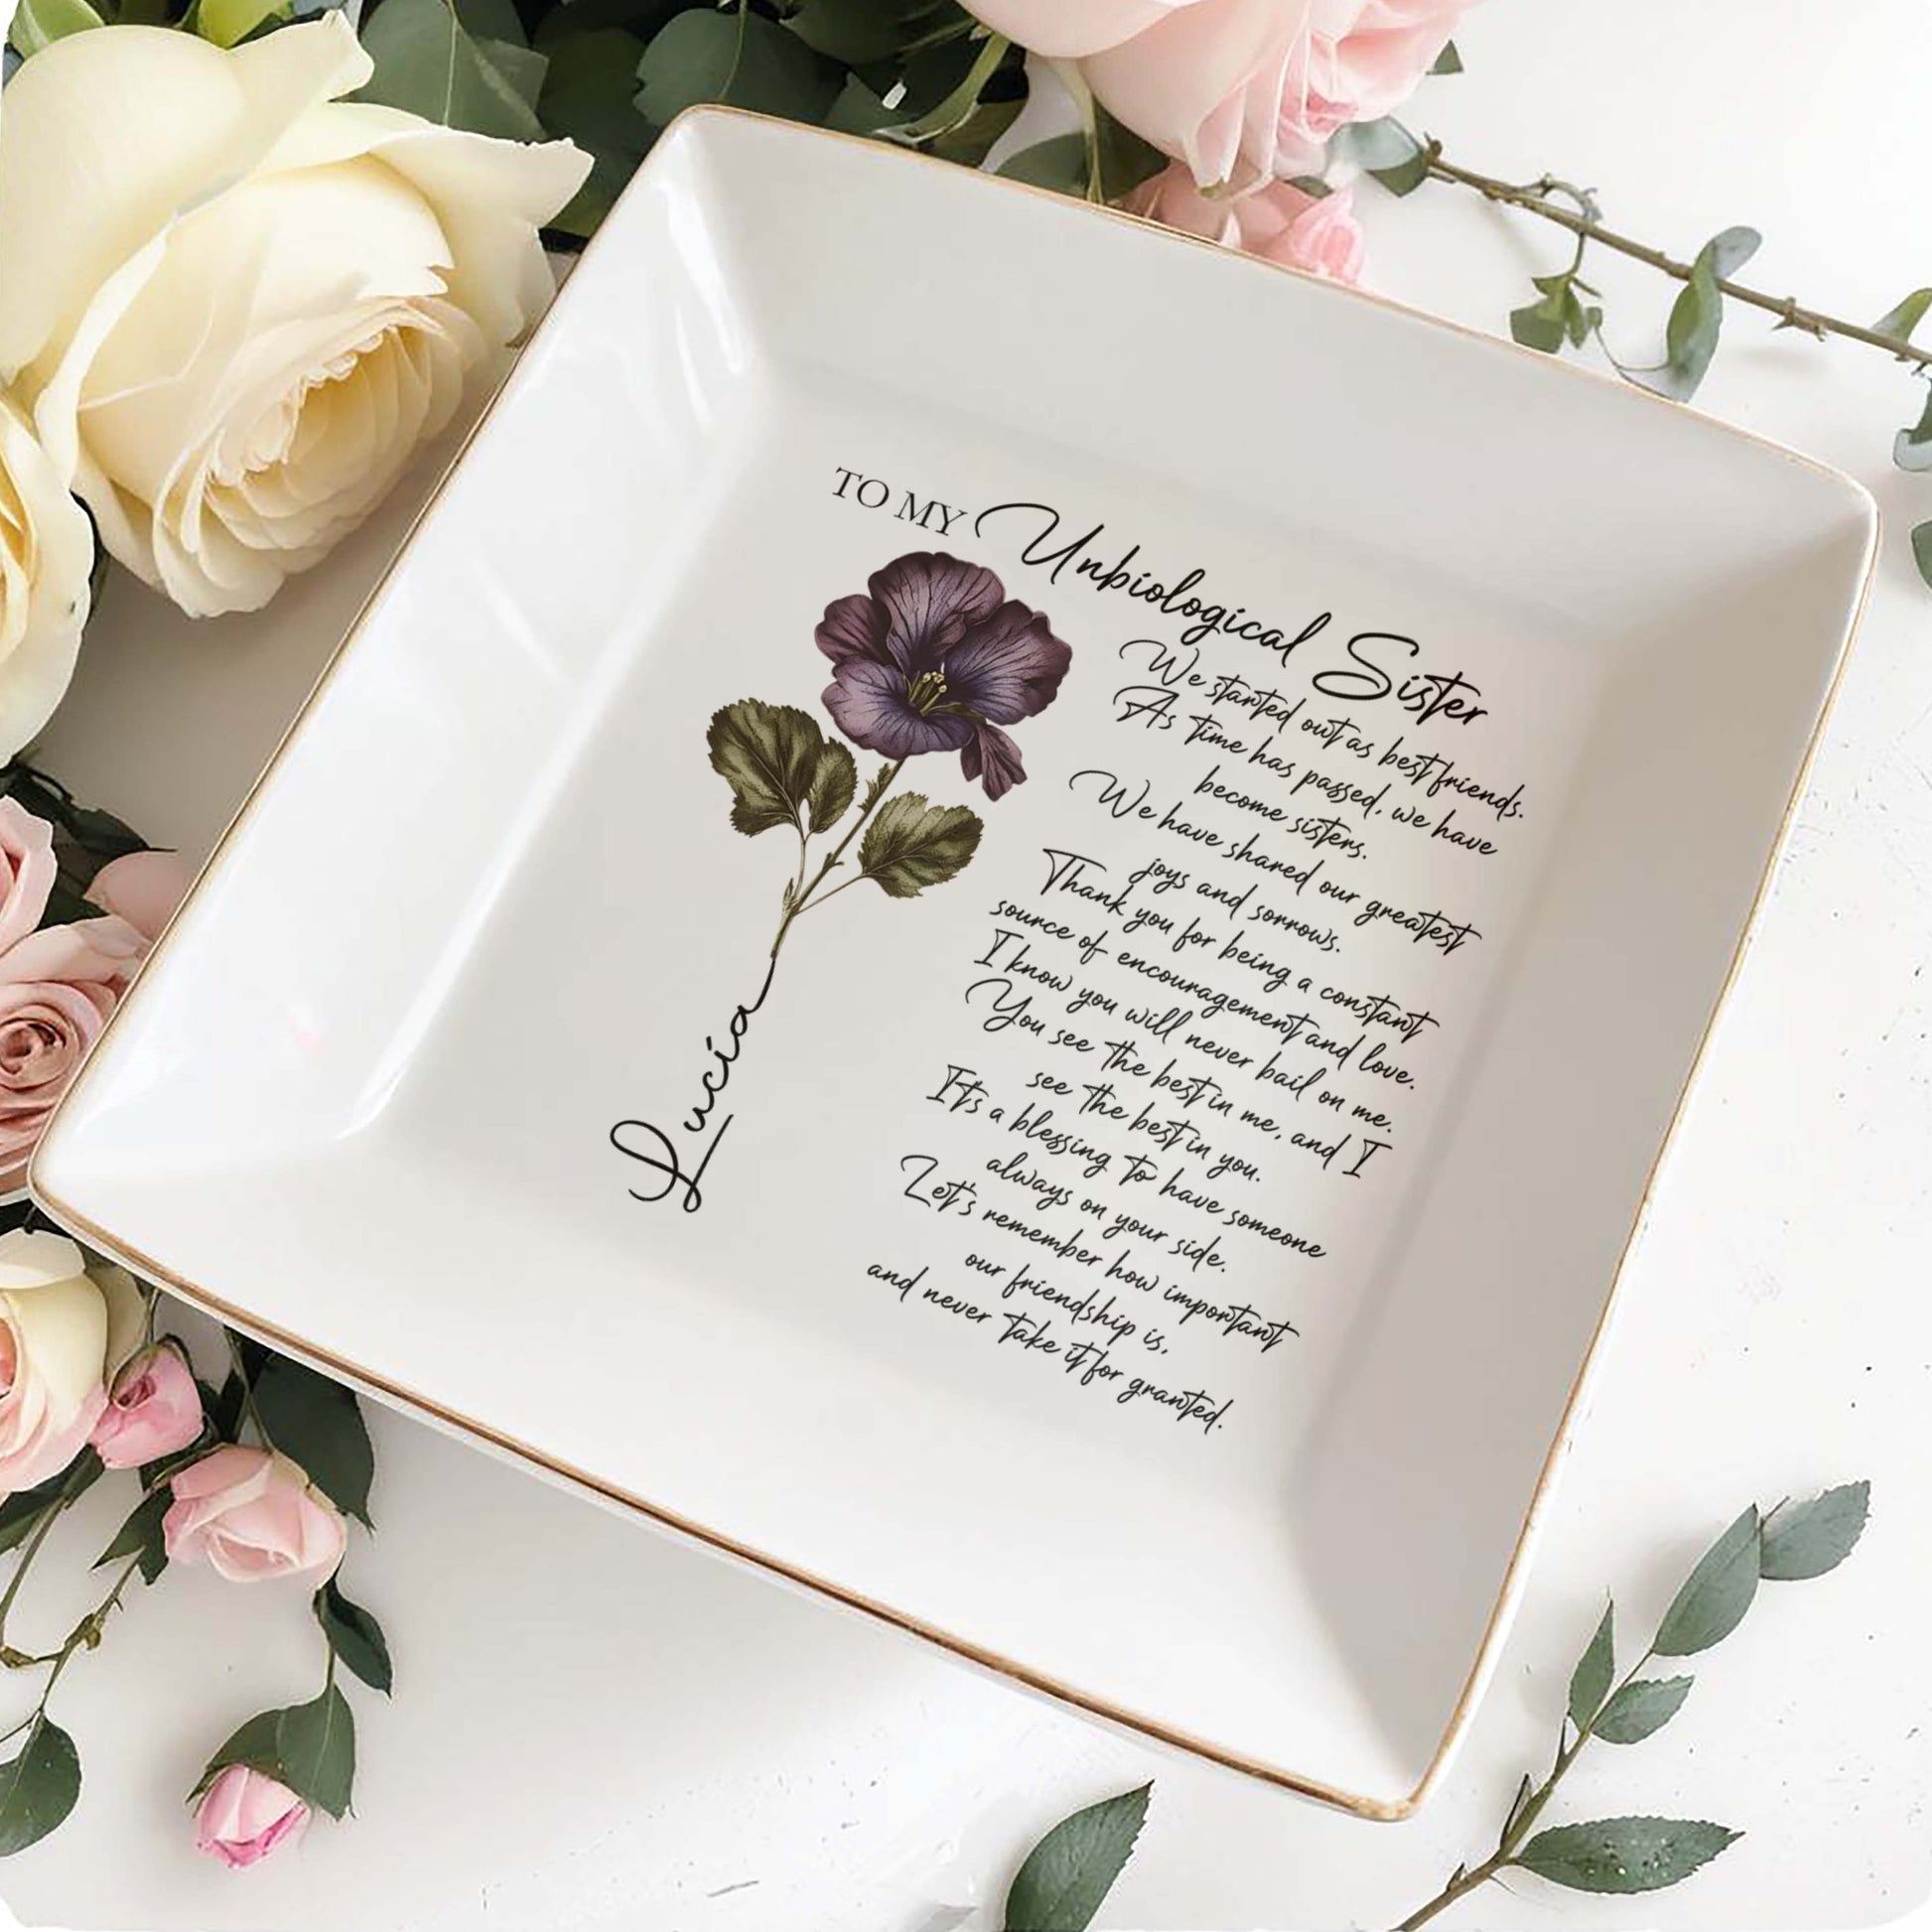 TO MY Unbiological Sister
We started out as best friends.
As time has passed, we have
become sisters.
We have shared our greatest
joys and sorrows.
Thank you for being a constant
source of encouragement and love.
I know you will never bail on me.
You see the best in me, and I
see the best in you.
It's a blessing to have someone
always on your side.
Let's remember how important
our friendship is,
and never take it for granted.
Lucia